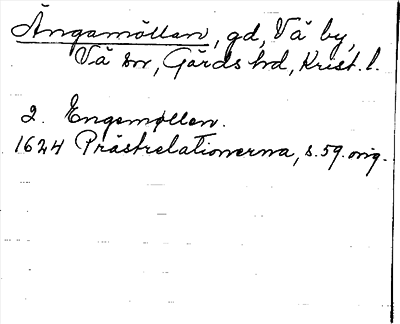 Ängamöllan, gd, Vä by,
Vä sn, Gärds hd, Krist. l.
2. Engemøllen.
1624 Prästrelationerna, s. 59. orig.